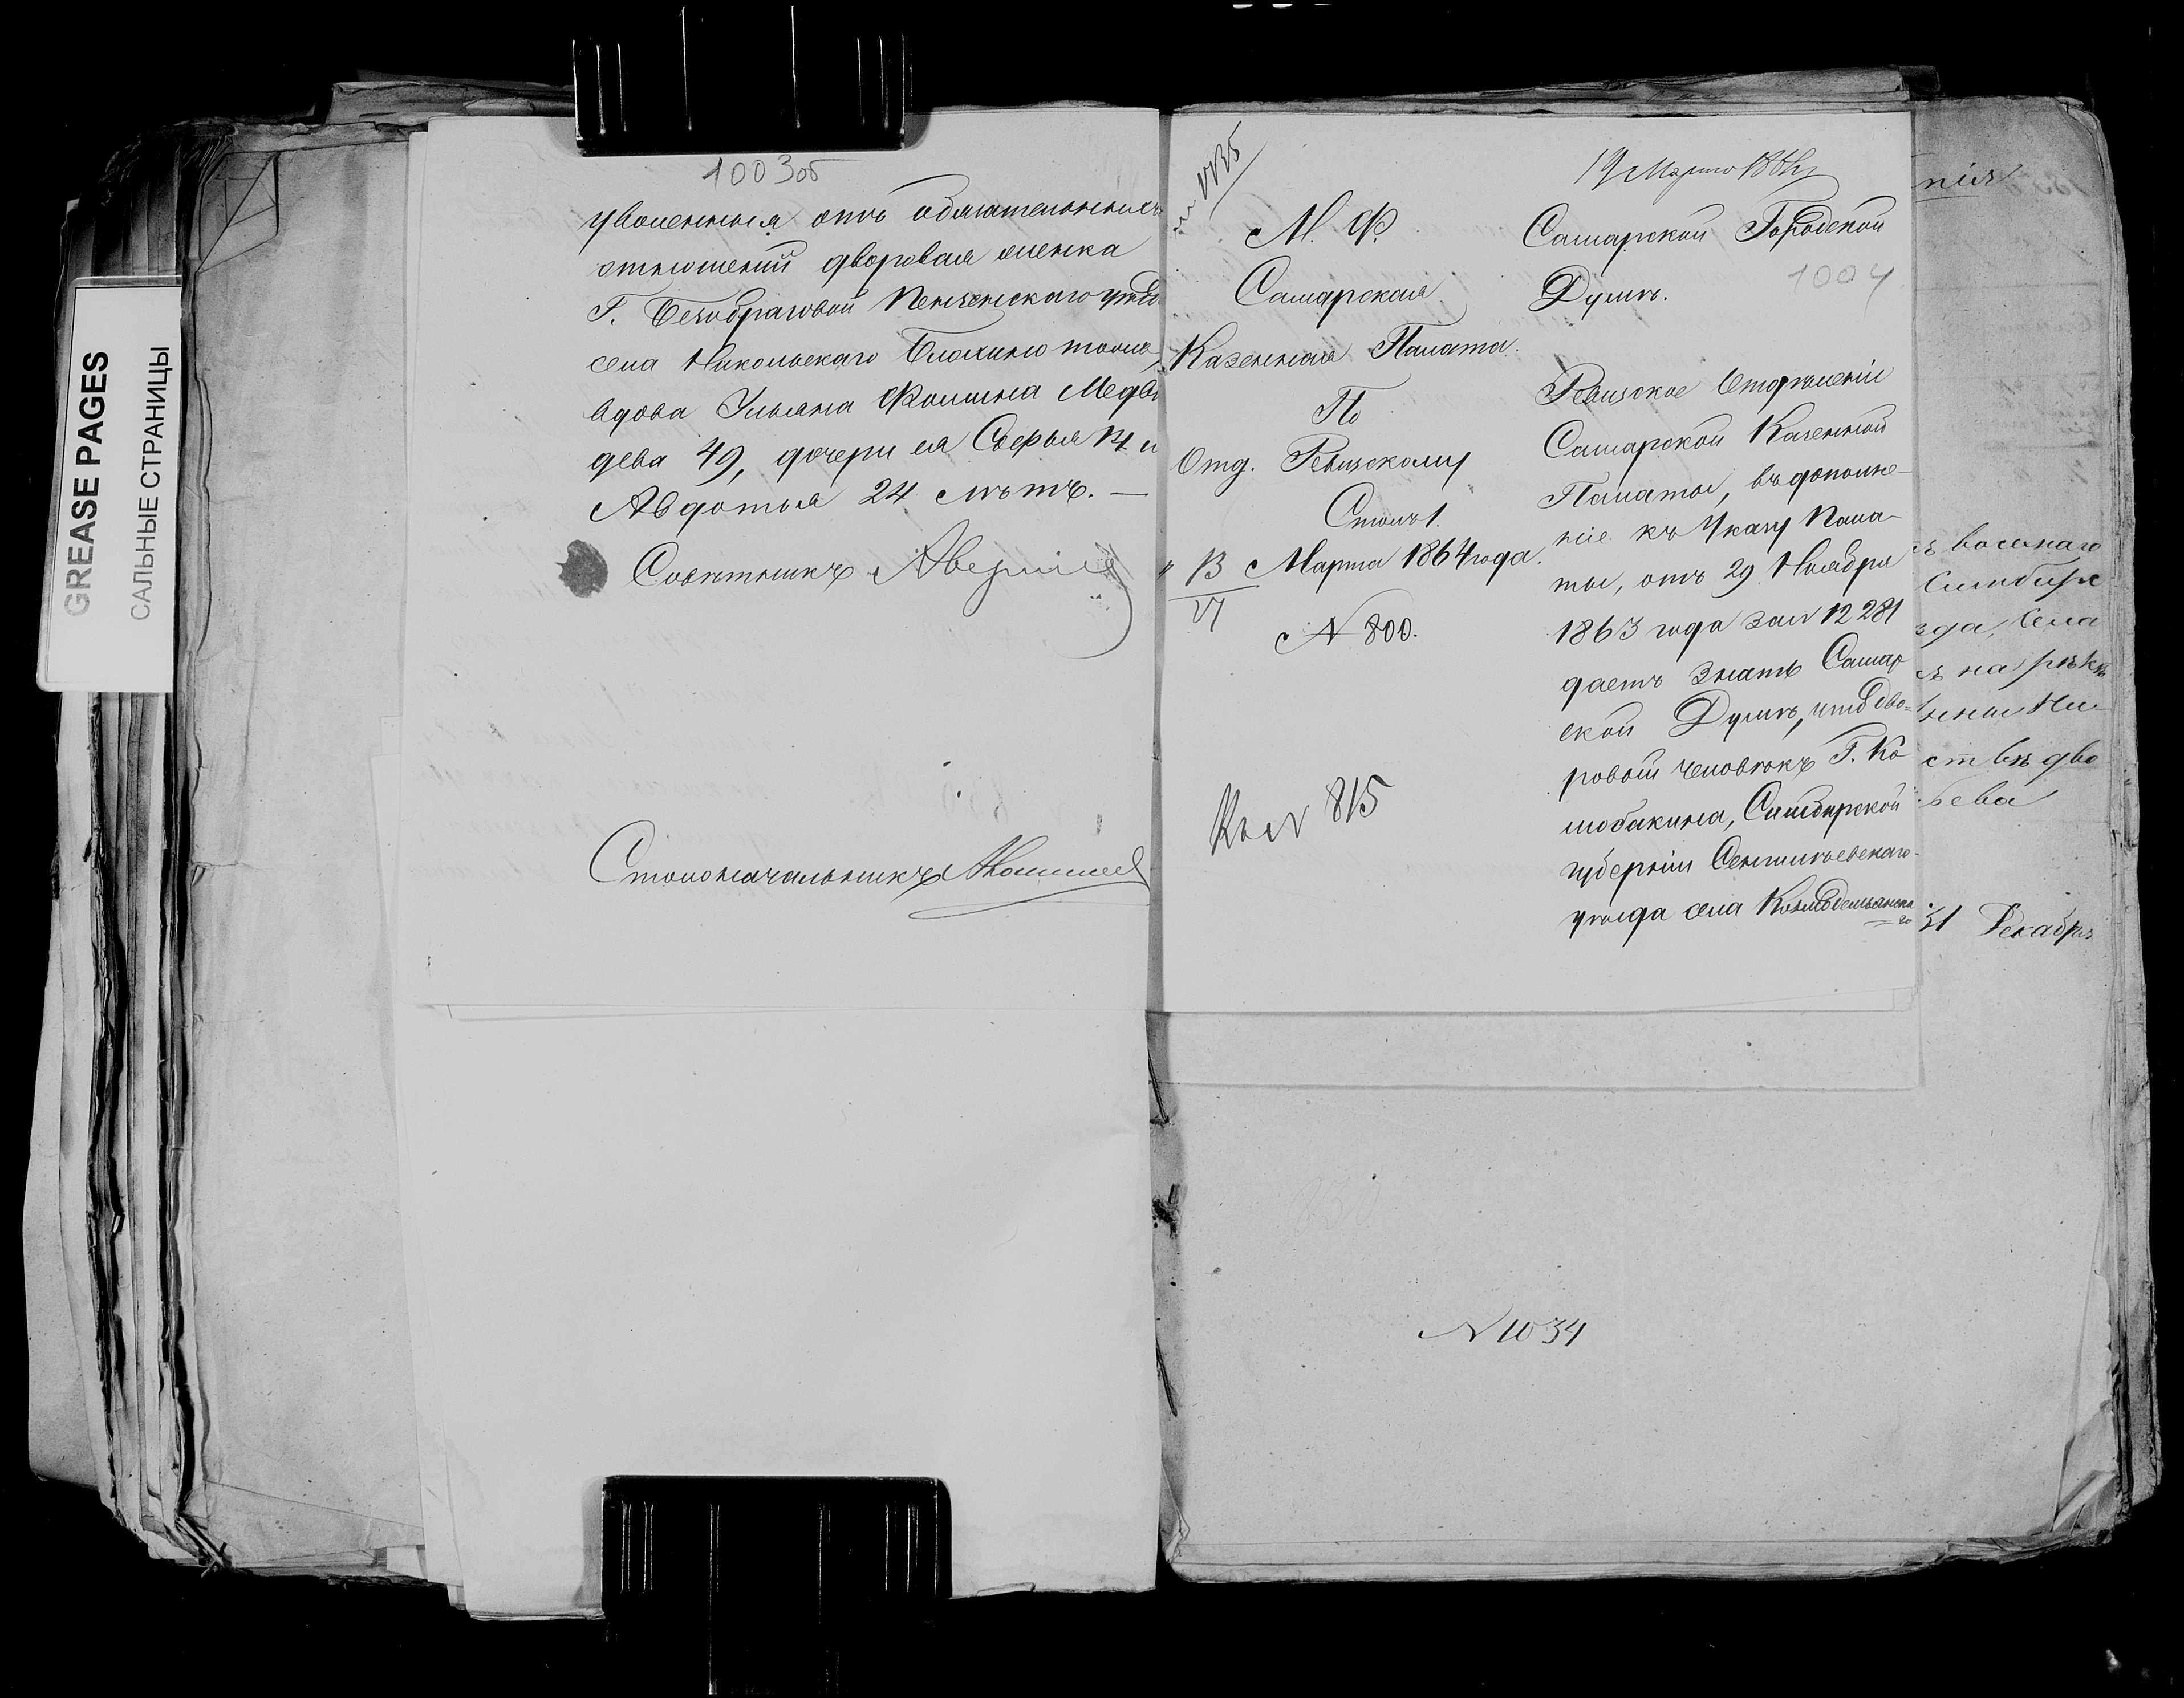 GREASE PAGES
САЛЬНЫЕ СТРАНИЦЫ
1003об
уволенныя отъ обязательныхъ
отношеній дворовая женка
Г. Безобразовой Пензенскаго уѣзда
села Никольскаго Блохино тожъ
вдова Ульяна Фомина Медвѣ
дева 49, дочери ея Софья 14 и
Авдотья 24 лѣтъ. —
Совѣтникъ
Столоначальникъ
М. Ф.
Самарская
Казенная Палата.
По
Отд. Ревизскому
Столъ 1.
13 Марта 1864 года.
VI
N 800.
Къ N 815
19 Марта 1864
Самарской Городской
1004
Думѣ.
Ревизское Отдѣленіе
Самарской Казенной
Палаты, въ дополне-
ніе къ Указу Пала-
ты, отъ 29 Ноября
1863 года за N 12281
даетъ знать Самар
ской Думѣ, что дво=
ровый человѣкъ Г. Ко
лобакина, Симбирской
губерніи Сенгилѣевскаго
уѣзда села Козьмодемьянска
=го
нія
Симбирс
зда, Села
на рѣкѣ
ств дво
ьева
31 Декабря
830
N 1034